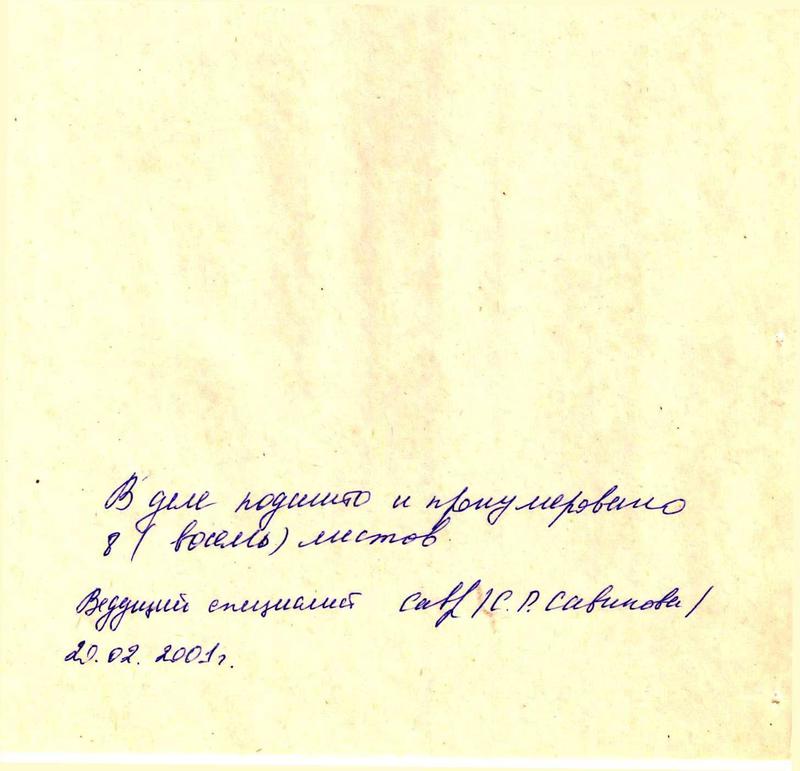 В деле подшито и пронумеровано
8 (восемь) листов
Ведущий специалист /С. Р. Савинова/
20.02.2001г.